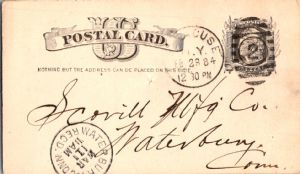 US
POSTAL CARD.
NOTHING BUT THE ADDRESS CAN BE PLACED ON THIS SIDE.
CUSE
N.Y.
FEB 28 84
12 30 PM
2
Scovill Mfg Co.
Waterbury
Conn.
WATERBURY CONN
MAR
1
11 AM
RECD